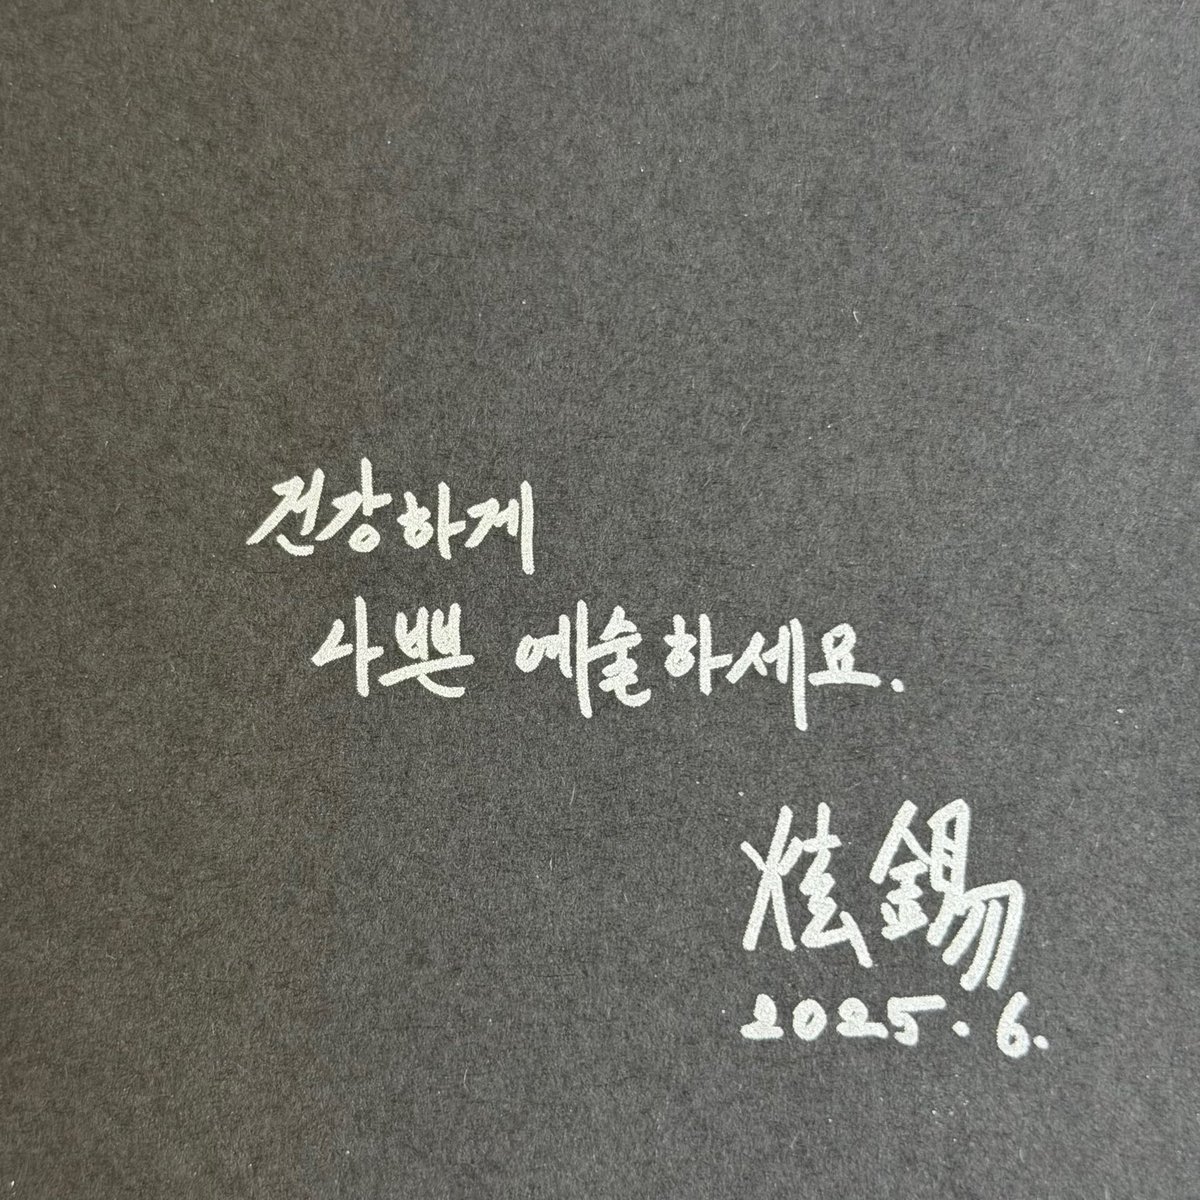 건강하게
나쁜 예술하세요.
炫錫
2025.6.